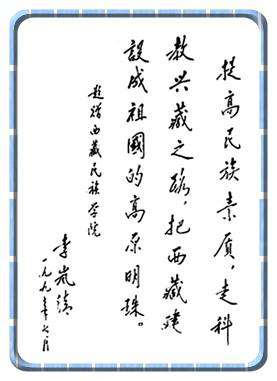 提高民族素质，走科
教兴藏之路，把西藏建
設成祖國的高原明珠。
题赠西藏民族学院
李岚清
一九九八年七月